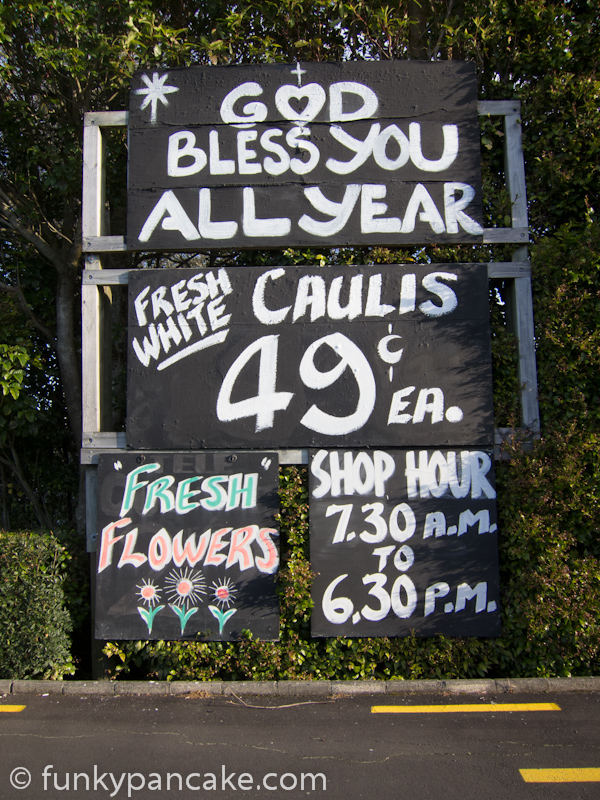 GOD
BLESS YOU
ALL YEAR
FRESH
WHITE
CAULIS
49¢
EA.
"FRESH"
FLOWERS
SHOP HOUR
7.30 A.M.
TO
6.30 P.M.
© funkypancake.com